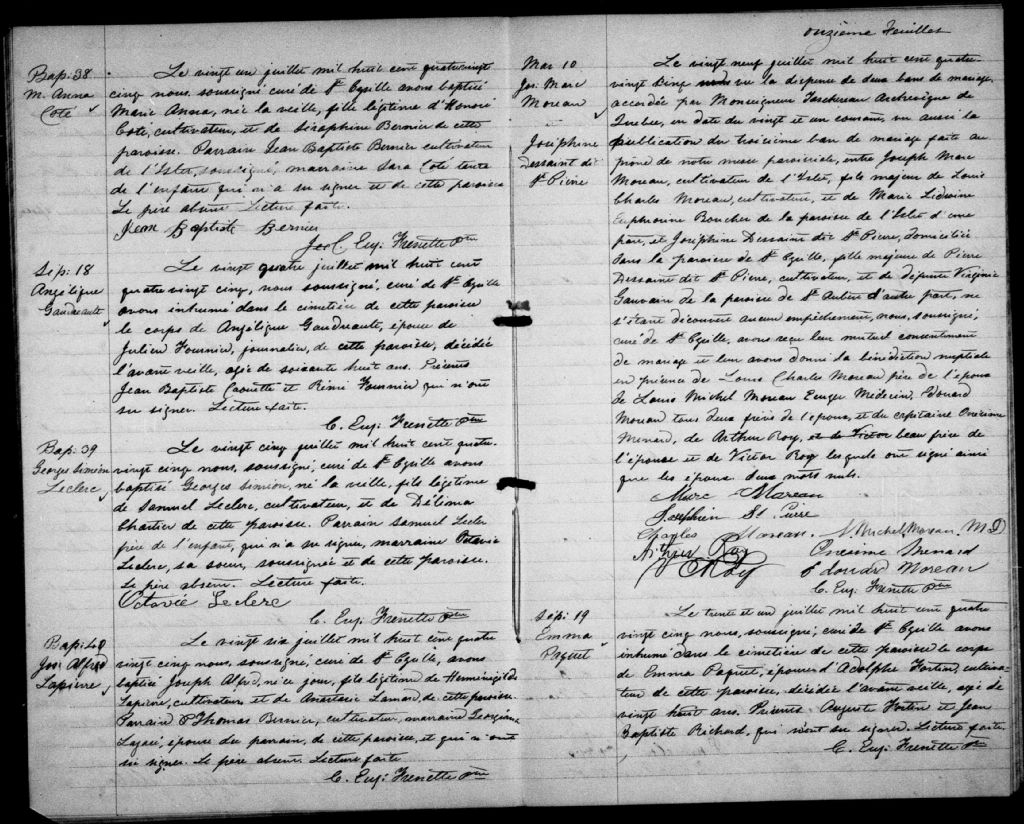 Bap: 38
M. Anna
Coté
Le vingt un juillet mil huit cent quatrevingt
cinq nous, soussigné curé de St Cyrille avons baptisé
Marie Anna, née la veille, fille légitime d'Honoré
Coté, cultivateur, et de Séraphine Bernier de cette
paroisse. Parrain Jean Baptiste Bernier cultivateur
de l'Islet, soussigné, marraine Sara Coté tante
de l'enfant qui n'a su signer et de cette paroisse
Le père absent. Lecture faite.
Jean Baptiste Bernier
C. Euj: Frenette Ptre
Sép: 18
Angélique
Gaudreault
Le vingt quatre juillet mil huit cent
quatre vingt cinq, nous soussigné, curé de St Cyrille
avons inhumé dans le cimetière de cette paroisse
le corps de Angélique Gaudreault, épouse de
Julien Fournier, journalier, de cette paroisse, décédée
l'avant veille, agée de soixante huit ans. Présents
Jean Baptiste Caouette et Rémi Fournier qui n'ont
su signer. Lecture faite.
C. Euj: Frenette Ptre
Bap: 39
Georges Siméon
Leclerc
Le vingt cinq juillet mil huit cent quatre
vingt cinq nous, soussigné, curé de St Cyrille avons
baptisé Georges Siméon, né la veille, fils légitime
de Samuel Leclerc, cultivateur, et de Délima
Chartier de cette paroisse. Parrain Samuel Leclerc
frère de l'enfant, qui n'a su signer, marraine Octavie
Leclerc, sa soeur, soussignée et de cette paroisse.
Le père absent. Lecture faite.
Octavie Leclerc
C. Euj: Frenette Ptre
Bap: 40
Jos: Alfred
Lapierre
Le vingt six juillet mil huit cent quatre
vingt cinq nous, soussigné, curé de St Cyrille, avons
baptisé Joseph Alfred, né ce jour, fils légitime de Herménégilde
Lapierre, cultivateur, et de Anastasie Lamard de cette paroisse.
Parrain Thomas Bernier, cultivateur, marraine Georgina
épouse du parrain, de cette paroisse, et qui n'ont
su signer. Le père absent. Lecture faite
C. Euj: Frenette Ptre
onzième Feuillet
Mar 10
Jos: Marc
Moreau
Joséphine
Dessaint dit
St Pierre
Le vingt neuf juillet mil huit cent quatre
vingt cinq vu la dispense de deux bans de mariage
accordée par Monseigneur Taschereau Archevêque de
Québec, en date du vingt et un courant, vu aussi la
publication du troisième ban de mariage faite au
prône de notre messe paroissiale, entre Joseph Marc
Moreau, cultivateur de l'Islet, fils majeur de Louis
Charles Moreau, cultivateur, et de Marie Lidwine
Euphrosine Boucher de la paroisse de l'Islet d'une
part, et Joséphine Dessaint dit St Pierre, domiciliée
dans la paroisse de St Cyrille, fille majeure de Pierre
Dessaint dit St Pierre, cultivateur, et de défunte Virginie
Gauvain de la paroisse de St Aubert d'autre part, ne
s'étant découvert aucun empêchement, nous, soussigné,
curé de St Cyrille, avons reçu leur mutuel consentement
de mariage et leur avons donné la bénédiction nuptiale
en présence de Louis Charles Moreau père de l'époux
de Louis Michel Moreau Ecuyer Médecin, Edouard
Moreau tous deux frères de l'époux, et du capitaine Onésime
Menard, de Arthur Roy, et de Victor beau frère de
l'épouse et de Victor Roy lesquels ont signé ainsi
que les époux. Deux mots nuls.
Marc Moreau
Josephine St Pierre
Charles Moreau. L. Michel Moreau M.D
Arthur Roy Onesime Menard
V Roy Edouard Moreau
C. Euj: Frenette Ptre
Sép: 19
Emma
Paquet
Le trente et un juillet mil huit cent quatre
vingt cinq nous, soussigné, curé de St Cyrille avons
inhumé dans le cimetière de cette paroisse le corps
de Emma Paquet, épouse d'Adolphe Fortin, cultiva-
teur de cette paroisse, décédée l'avant veille, agée de
vingt huit ans. Présents Auguste Fortin et Jean
Baptiste Richard, qui n'ont su signer. Lecture faite.
C. Euj: Frenette Ptre